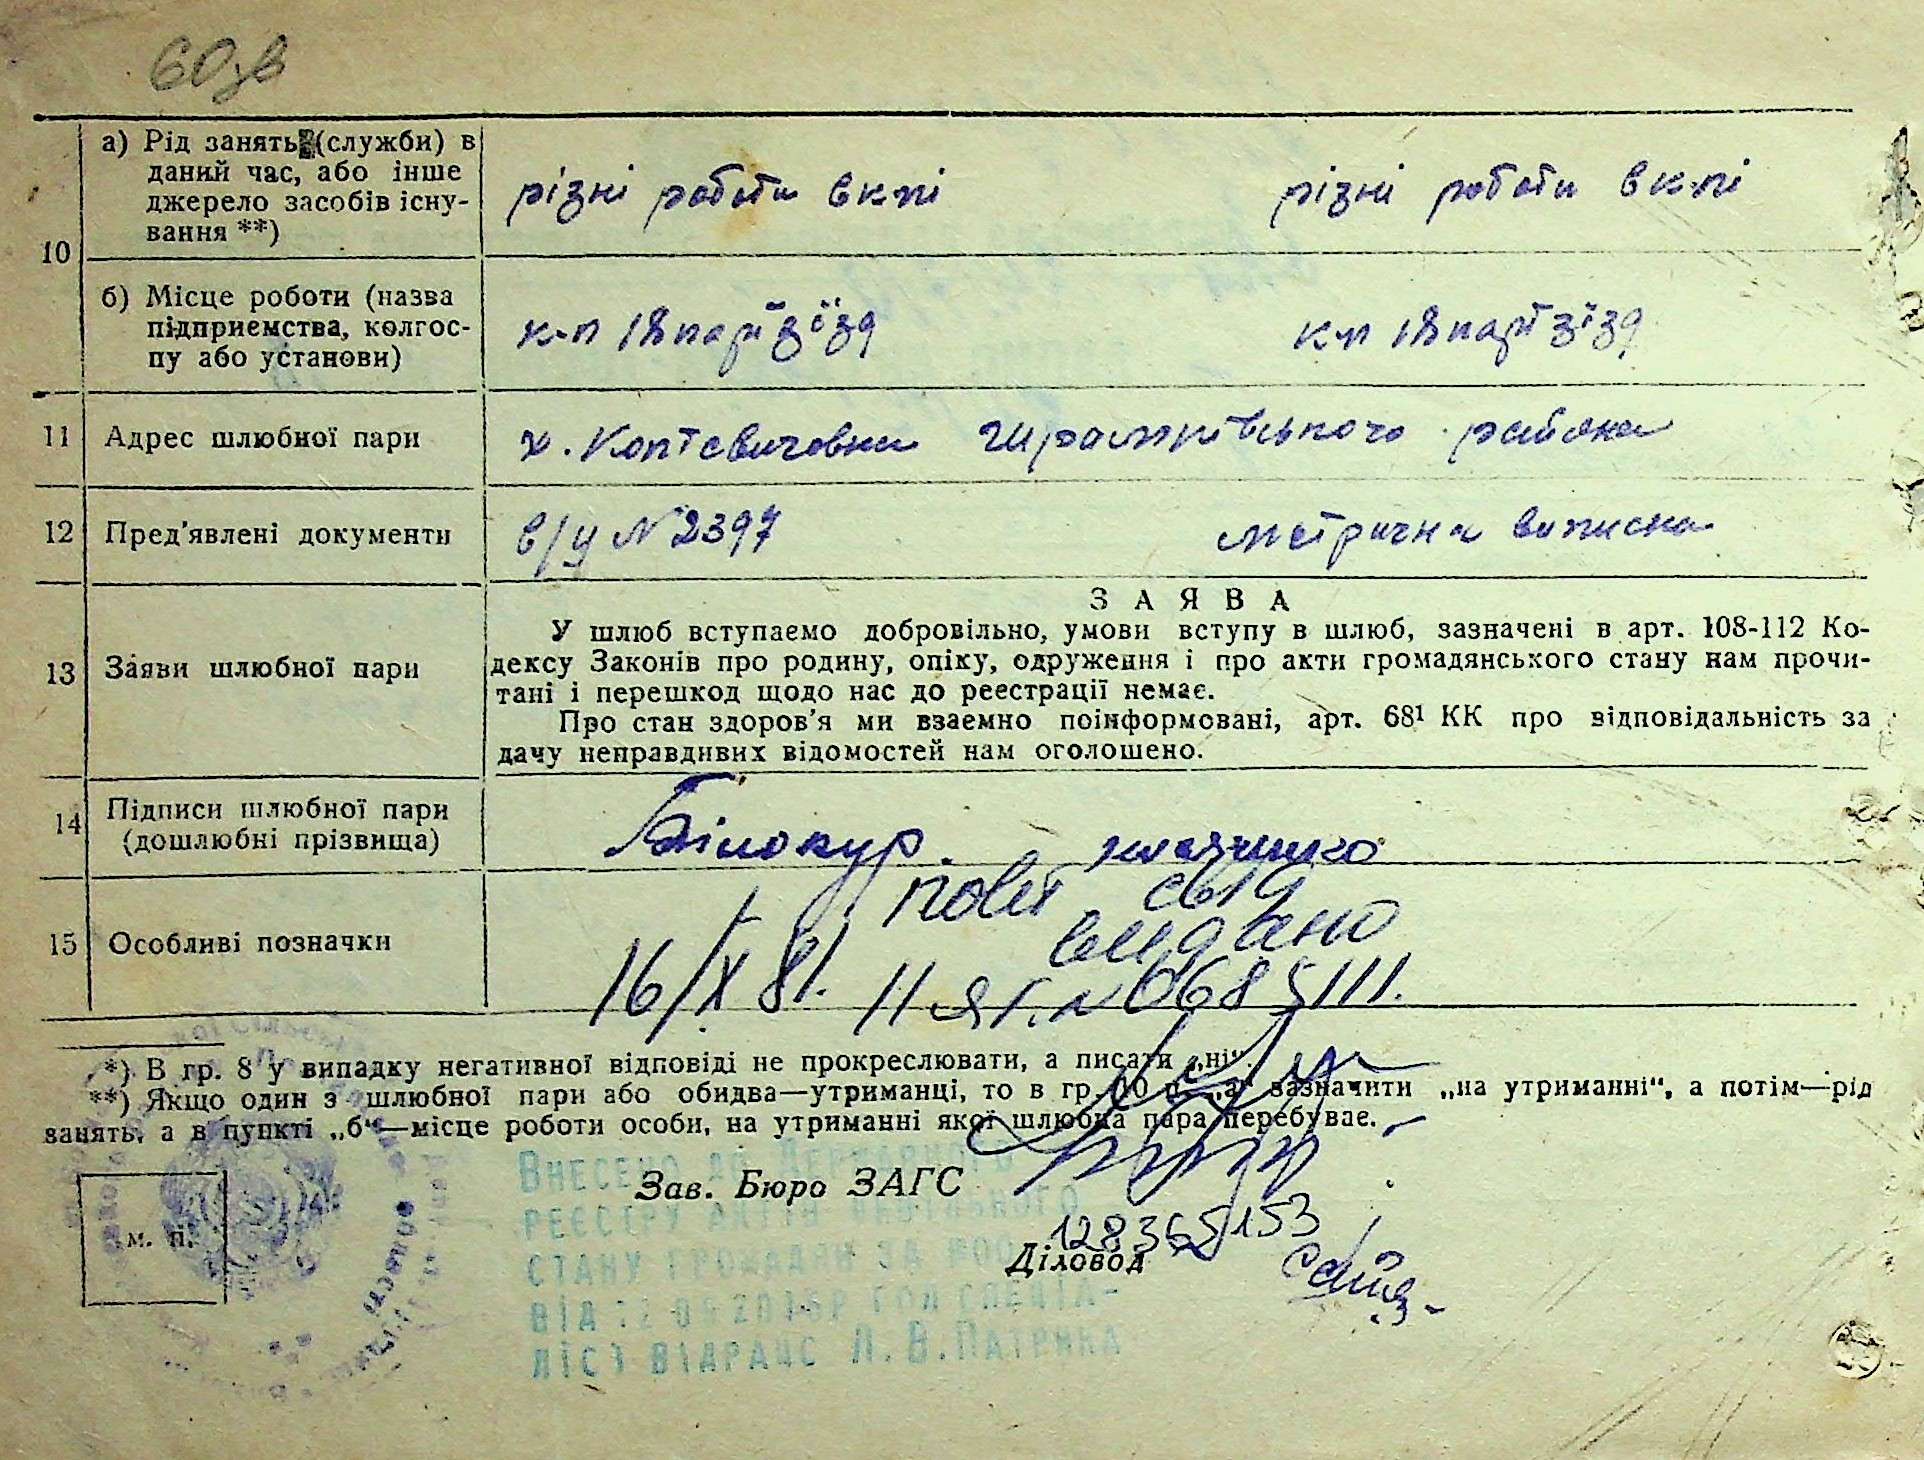 60зв
10
а) Рід занять (служби) в
даний час, або інше
джерело засобів існу-
вання **)
різні роботи в к-пі
різні роботи в к-пі
б) Місце роботи (назва
підприємства, колгос-
пу або установи)
к-п 18 парт з'їзд
к-п 18 парт з'їзд
11 Адрес шлюбної пари
х. району
12 Пред'явлені документи
в/у N 2397
метрична виписка
13 Заяви шлюбної пари
ЗАЯВА
У шлюб вступаємо добровільно, умови вступу в шлюб, зазначені в арт. 108-112 Ко-
дексу Законів про родину, опіку, одруження і про акти громадянського стану нам прочи-
тані і перешкод щодо нас до реестрації немає.
Про стан здоров'я ми взаемно поінформовані, арт. 68¹ КК про відповідальність за
дачу неправдивих відомостей нам оголошено.
14 Підписи шлюбної пари
(дошлюбні прізвища)
Білокур.
15 Особливі позначки
повт св
видано
16/IX 81. II ЯГ. N 0685111.
*) В гр. 8 у випадку негативної відповіді не прокреслювати, а писати „ні“.
**) Якщо один з шлюбної пари або обидва—утриманці, то в гр. 10 п. „а“ зазначити „на утриманні“, а потім—рід
занять, а в пункті „б“—місце роботи особи, на утриманні якої шлюбна пара перебуває.
Зав. Бюро ЗАГС
м. п.
128365153
Діловод
Внесено до Державного
реєстру актів цивільного
стану громадян за
від 2016р гол спеціа-
ліст відрацс Л. В. Патрика